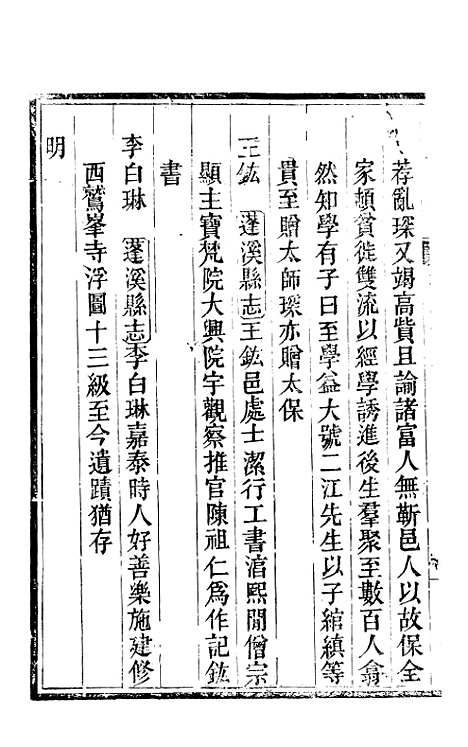 荐亂琛又竭高貲且諭諸富人無靳邑人以故保全
家頓貧徙雙流以經學誘進後生羣聚至數百人翕
然知學有子曰至學益大號二江先生以子綰縝等
貴至贈太師琛亦贈太保
王鈜 蓬溪縣志王鈜邑處士潔行工書湻熙閒僧宗
顯主寶梵院大興院宇觀察推官陳祖仁爲作記鈜
書
李白琳 蓬溪縣志李白琳嘉泰時人好善樂施建修
西鷲峯寺浮圖十三級至今遺蹟猶存
明